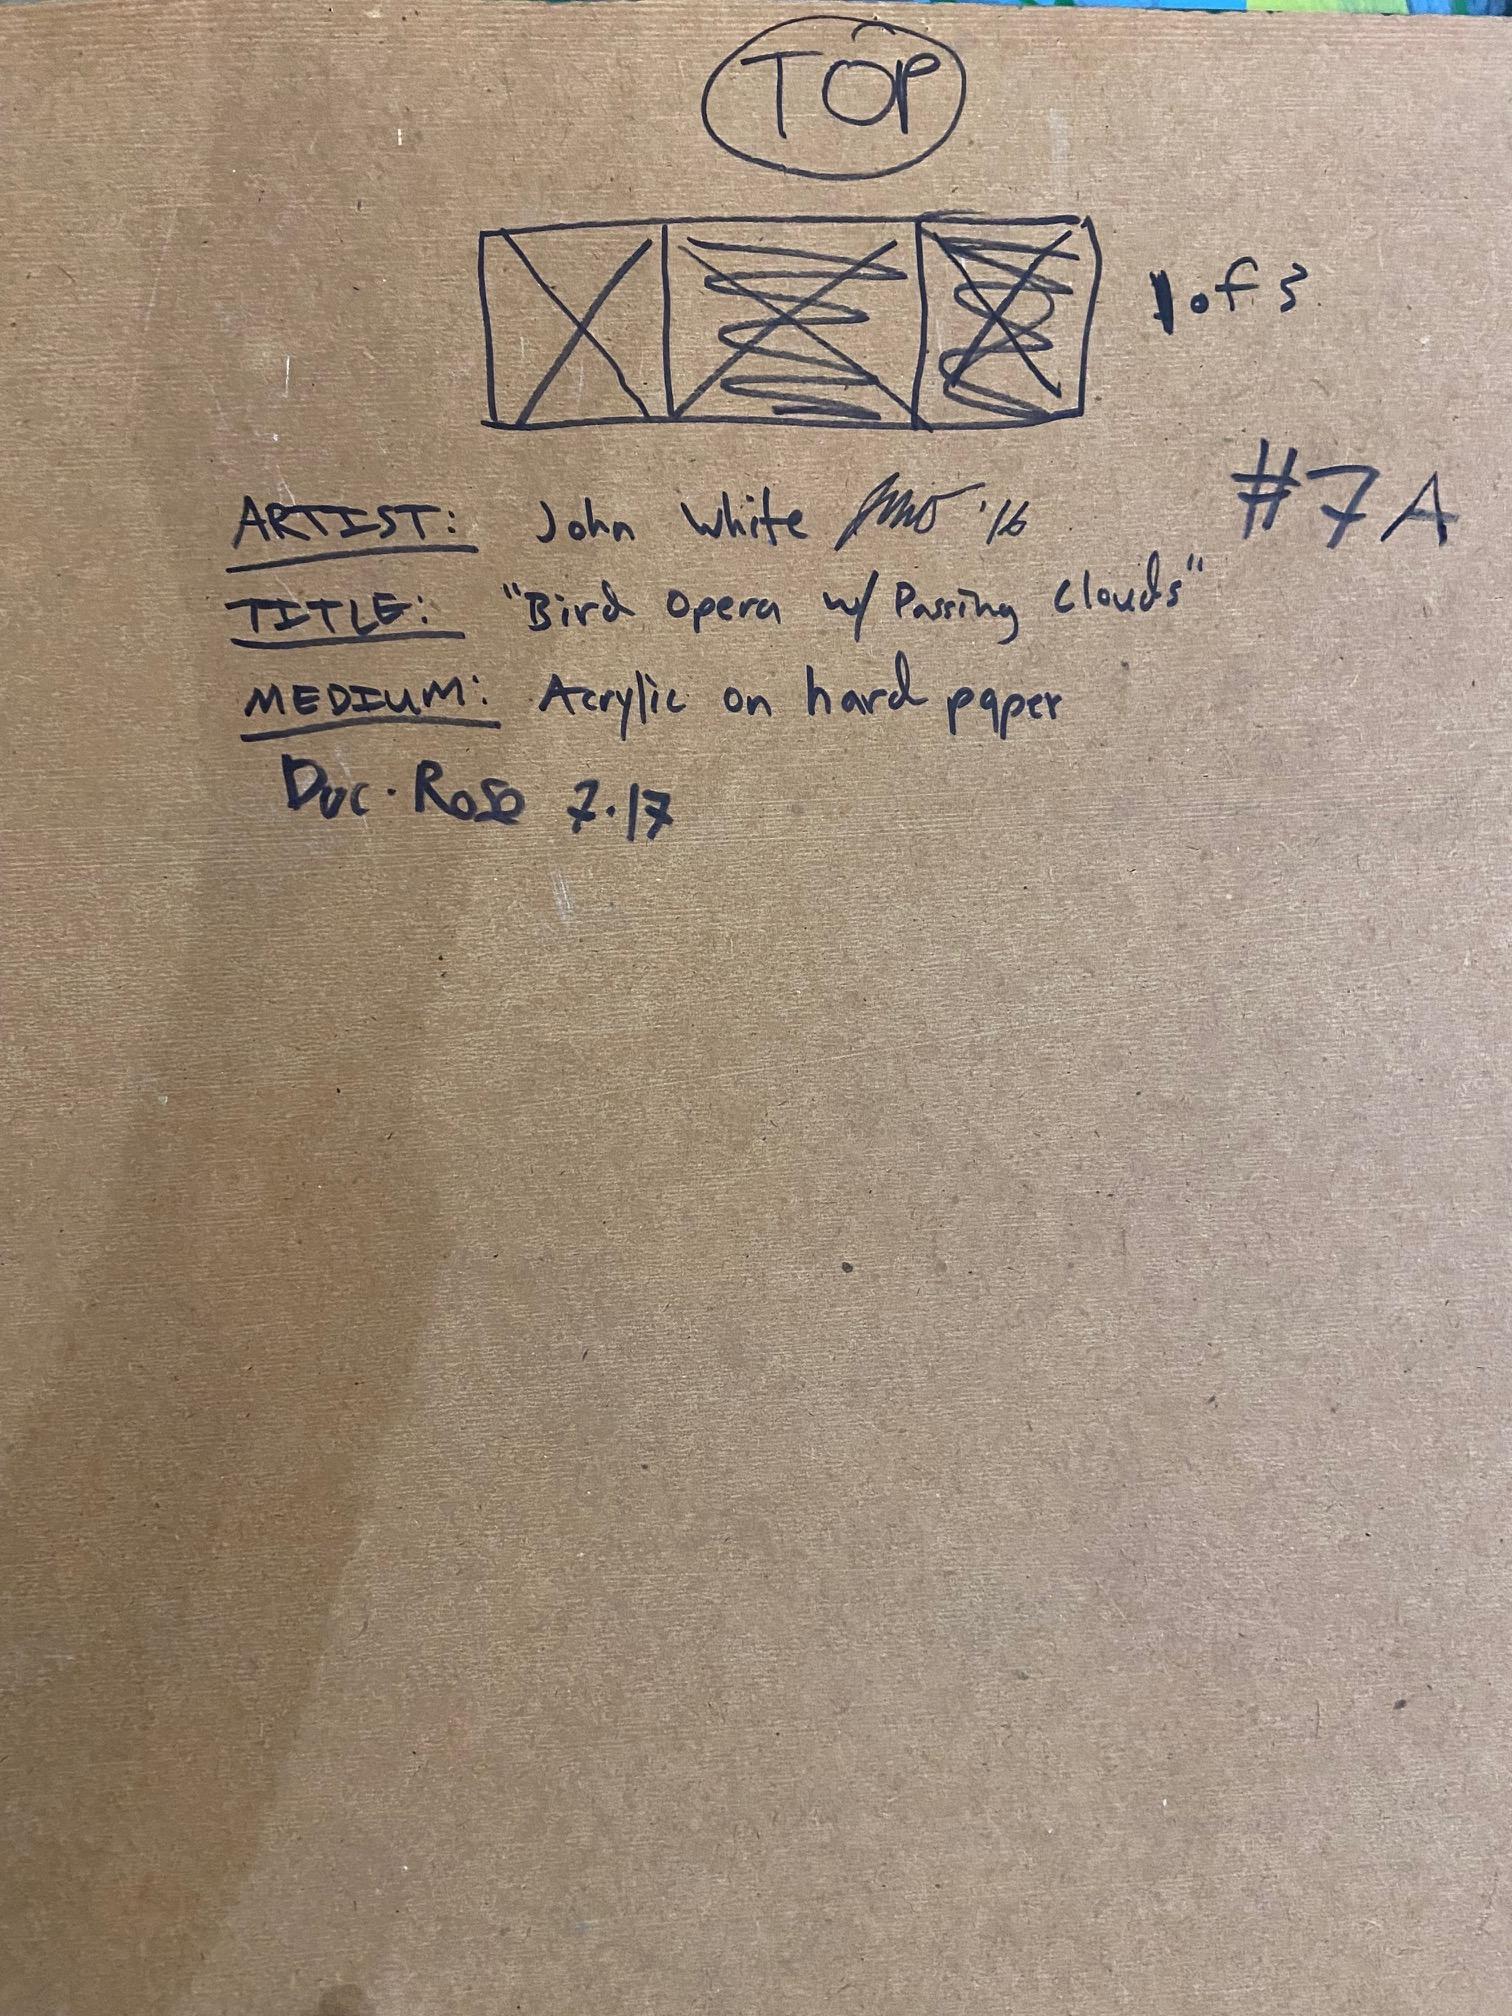 TOP
1 of 3
#7A
ARTIST: John White '16
TITLE: "Bird Opera w/ Passing Clouds"
MEDIUM: Acrylic on hard paper
Duc. Rose 7.17